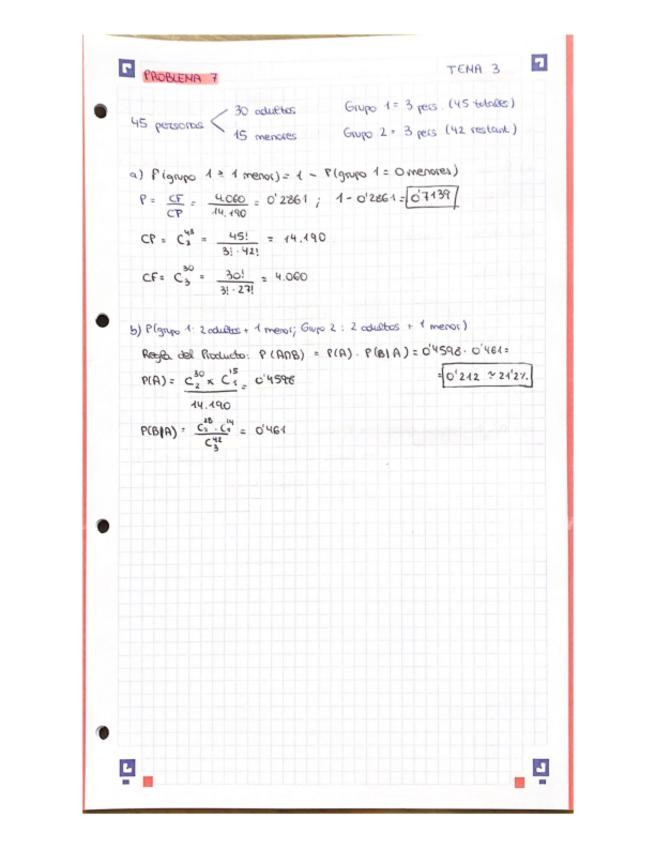 PROBLEMA 7
TEMA 3
45 personas < 30 adultos
15 menores
Grupo 1 = 3 pers. (45 totales)
Grupo 2 = 3 pers (42 restant)
a) P(grupo 1 ≥ 1 menor) = 1 - P(grupo 1 = 0 menores)
P = CF/CP = 4.060/14.190 = 0'2861 ; 1 - 0'2861 = 0'7139
CP = C₃⁴⁵ = 45!/(3!·42!) = 14.190
CF = C₃³⁰ = 30!/(3!·27!) = 4.060
b) P(grupo 1: 2 adultos + 1 menor; Grupo 2: 2 adultos + 1 menor)
Regla del Producto: P(A∩B) = P(A) · P(B|A) = 0'4596 · 0'461 =
= 0'212 ≈ 21'2%
P(A) = C₂³⁰ × C₁¹⁵ / 14.190 = 0'4596
P(B|A) = C₂²⁸ · C₁¹⁴ / C₃⁴² = 0'461